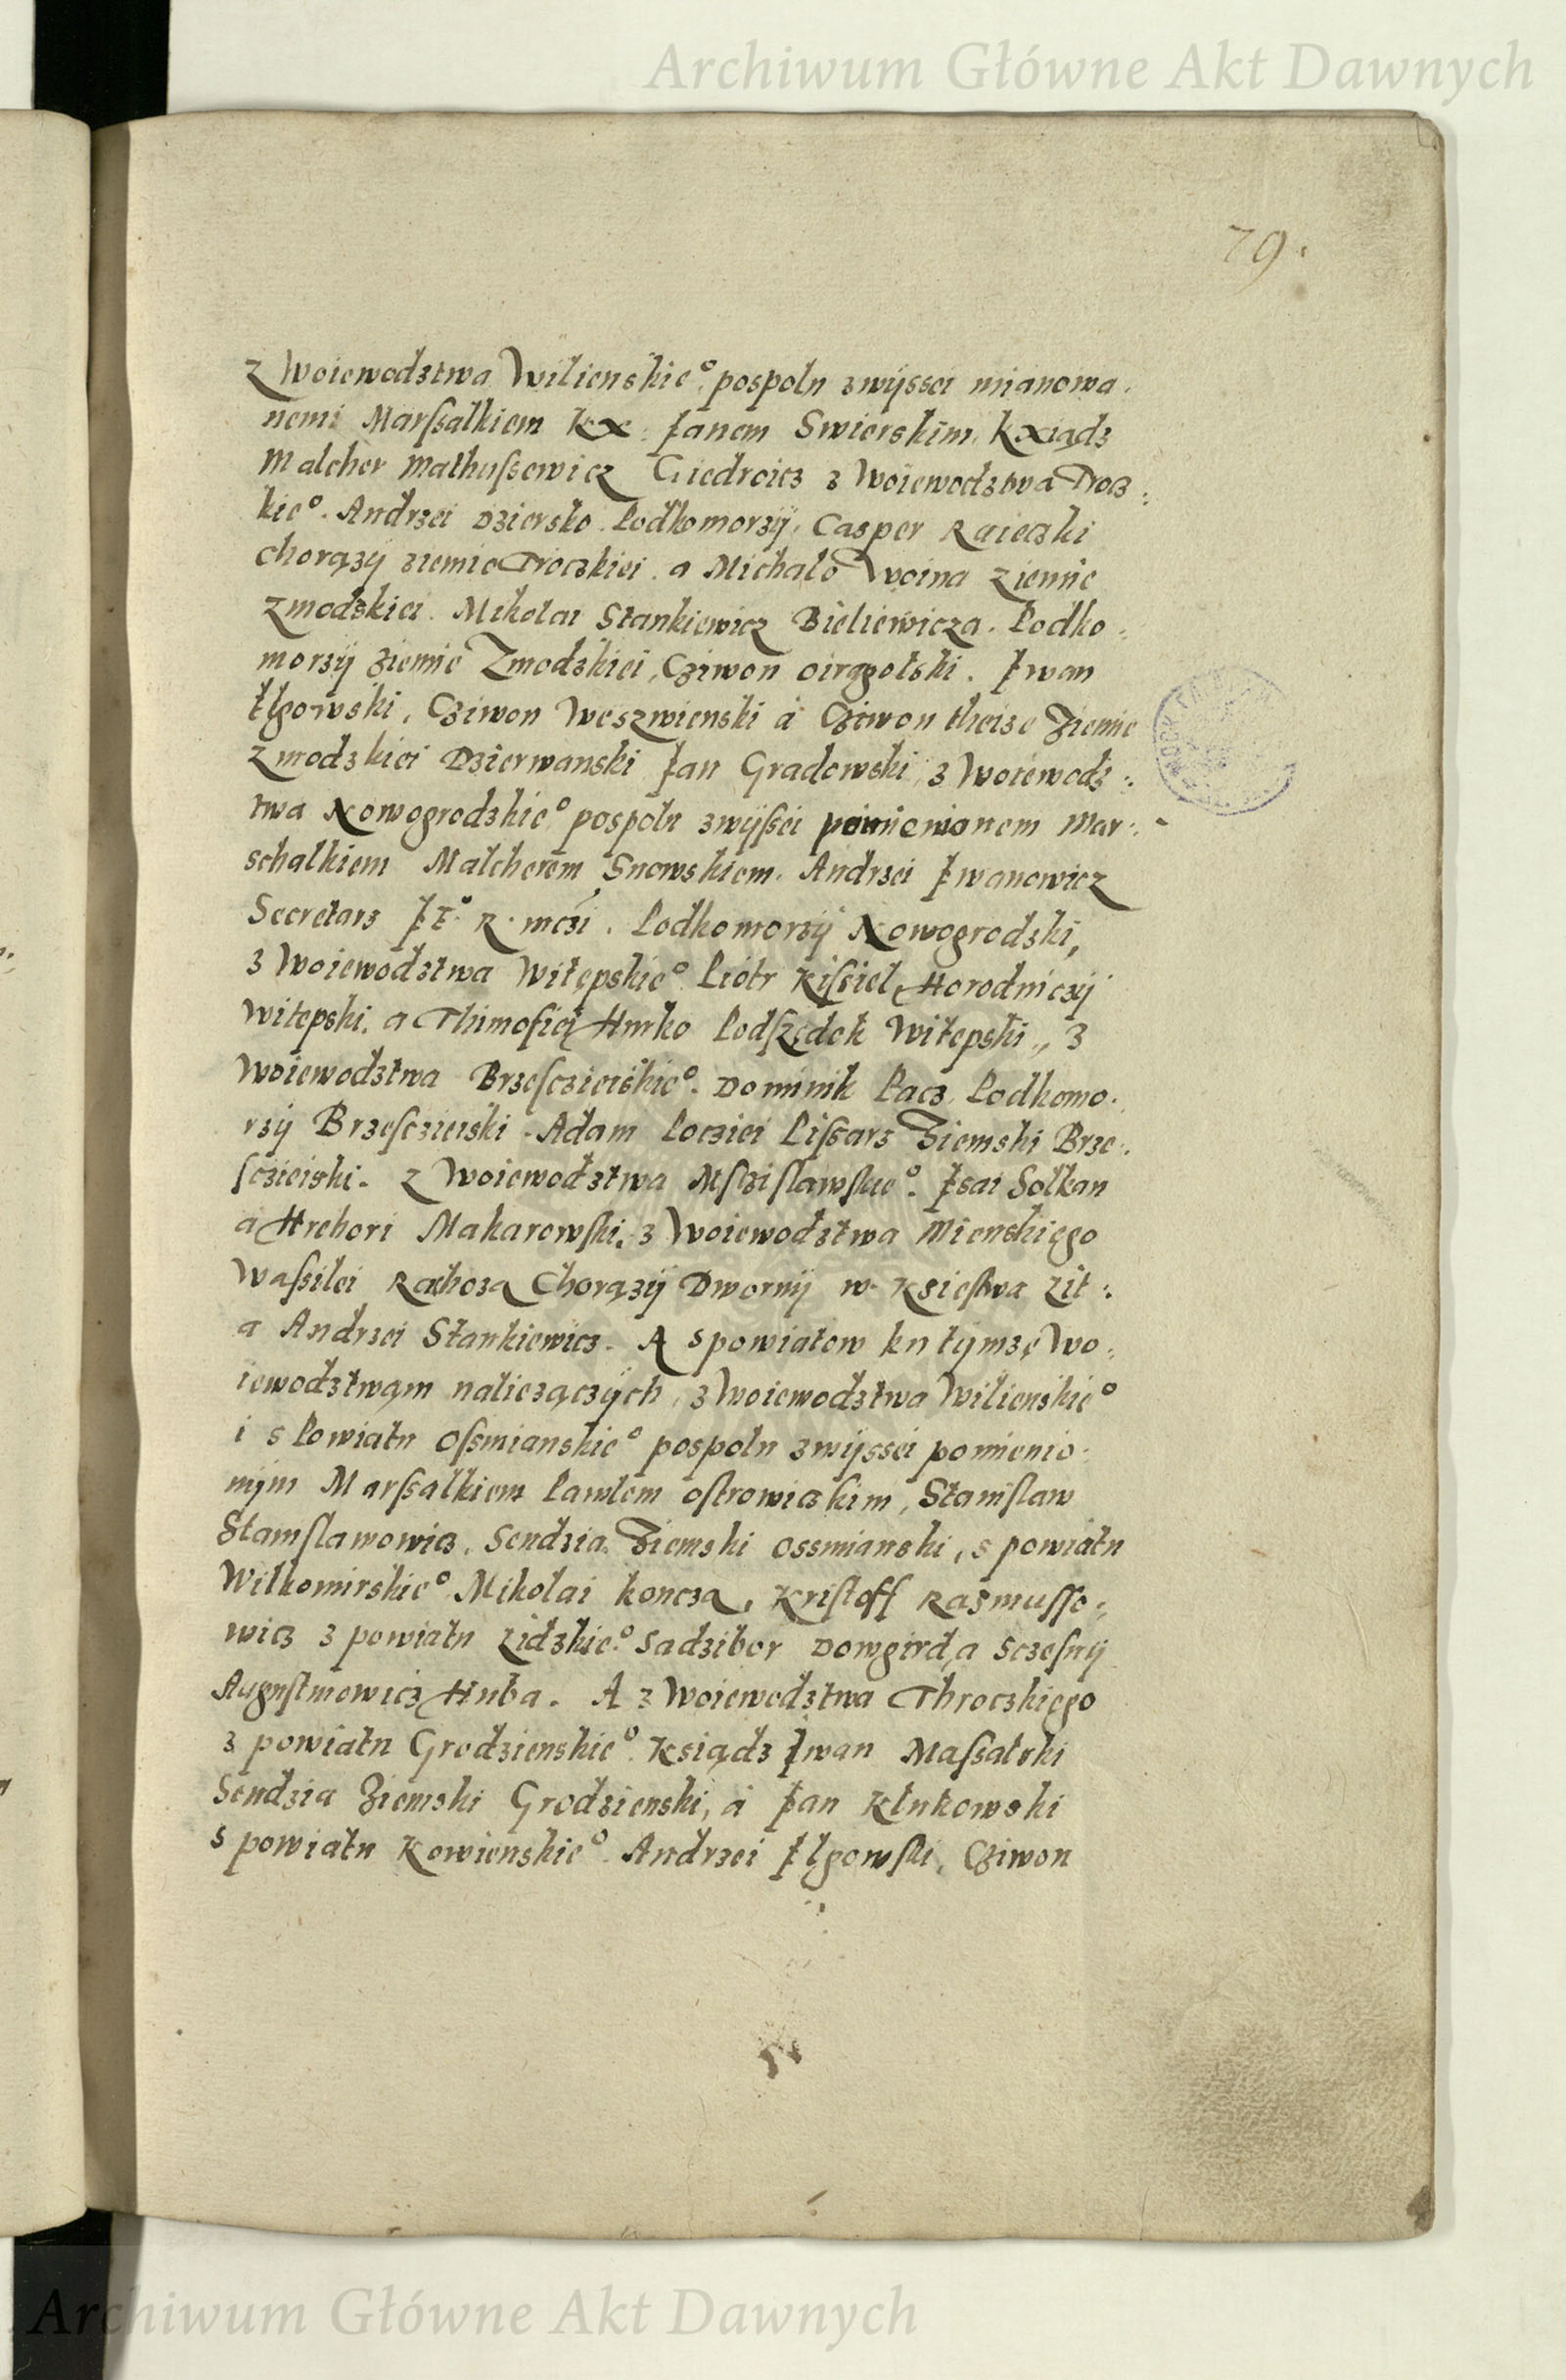 Archiwum Główne Akt Dawnych
79.
z Woiewodztwa Wilienskie° pospolu zwyssei mianowa.
nemi Marſsalkiem kx: Janem Swierskim, kxiądz
Malcher Mathuſsewicz Giedroicz z Woiewodztwa Trocz:
kie°. Andrzei Dziersko Podkomorzÿ, Casper Raieczki
chorązÿ ziemie Troczkiei. a Michalo Woina ziemie
zmodzkiei. Mikolai Stankiewicz Bieliewicza. Podko:
morzÿ ziemie Zmodzkiei, Cziwon oiragolski. Jwan
Jlgowski, Cziwon Weszwienski a Cziwon theize ziemie
zmodzkiei Dzierwanski Jan Gradowski, z Woiewodz:
twa Nowogrodzkie° pospolu zwÿſsei pomieniomem Mar:
schalkiem Malcherem Snowskiem. Andrzei Jwanowicz
Secretarz J K° R. mczi. Podkomorzÿ Nowogrodzki,
z Woiewodztwa Witepskie° Piotr Kiſsiel Horodniczÿ
Witepski, a Thimofiei Hurko Podſzędek Witepski, z
Woiewodztwa Brzeſczieiskie°. Dominik Pacz Podkomo.
rzÿ Brzeſczieiski. Adam Pocziei Piſsarz Ziemski Brze:
ſczieiski. z Woiewodztwa Mſcziſlawſkie°. Jsai Solkan
a Hrehori Makarowſki. z Woiewodztwa Mienskiego
Waſsilei Rahoza Chorązÿ Dwornÿ w. Ksieſtwa Lit:
a Andrzei Stankiewicz. A spowiatow ku tÿmze Wo:
iewodztwam naliezączÿch, z Woiewodztwa Wilienskie°
i s Powiatu Oſsmianskie° pospolu zwÿssei pomienio:
nÿm Marſsalkiem Pawlem oſtrowiczkim, Staniſlaw
Staniſlawowicz, Sendzia Ziemski ossmianski, s powiatu
Wilkomirskie° Mikolai koncza, Kriſtoff Razmuſſo:
wicz z powiatu Lidzkie° Sadzibor Dowgird, a Sczeſnÿ
Auguſtinowicz Huba. A z Woiewodztwa Throczkiego
z powiatu Grodzienskie° Ksiądz Jwan Maſsalski
Sendzia Ziemski Grodzienski, a Jan Klukowski
s powiatu Kowienskie° Andrzei Jlgowſki, Cziwon
Archiwum Główne Akt Dawnych